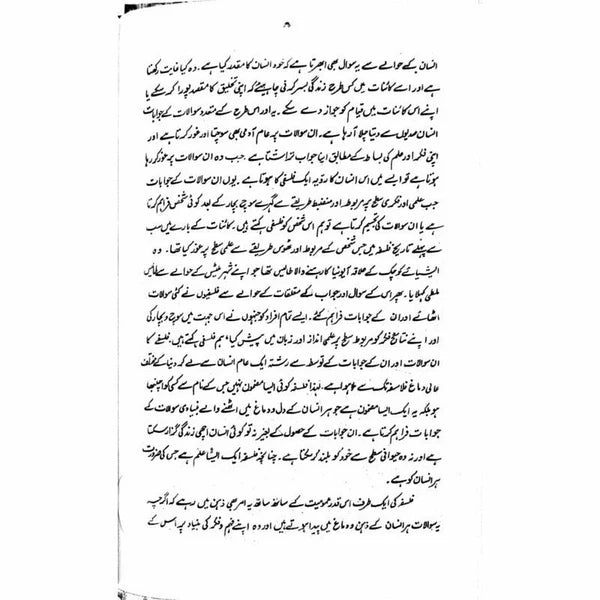 انسان کے حوالے سے یہ سوال بھی ابھرتا ہے کہ خود انسان کا مقصد کیا ہے۔ وہ کیا غایت رکھتا
ہے اور اسے کائنات میں کس طرح زندگی بسر کرنی چاہیئے کہ اپنی تخلیق کا مقصد پورا کر سکے یا
اپنے اس کائنات میں قیام کو جواز دے سکے۔ یہ اور اس طرح کے متعدد سوالات کے جوابات
انسان صدیوں سے دیتا چلا آ رہا ہے۔ ان سوالات پر عام آدمی بھی سوچتا اور غور کرتا ہے اور
اپنی فکر اور علم کی بساط کے مطابق اپنا جواب تراشتا ہے۔ جب وہ ان سوالات پر غور کر رہا
ہوتا ہے تو ایسے میں اس انسان کا رویہ ایک فلسفی کا ہوتا ہے۔ یوں ان سوالات کے جوابات
جب علمی اور فکری سطح پر مربوط اور منضبط طریقے سے گہرے سوچ بچار کے بعد کوئی شخص فراہم کرتا
ہے یا ان سوالات کی تجسیم کرتا ہے تو ہم اس شخص کو فلسفی کہتے ہیں۔ کائنات کے بارے میں سب
سے پہلے تاریخ فلسفہ میں جس شخص نے مربوط اور ٹھوس طریقے سے علمی سطح پر غور کیا تھا۔ وہ
ایشیائے کوچک کے علاقہ آیونیا کا رہنے والا طالیس تھا جو اپنے شہر ملیٹس کے حوالے سے طالیس
ملطی کہلایا۔ پھر اس کے سوال اور جواب کے متعلقات کے حوالے سے فلسفیوں نے کئی سوالات
اٹھائے اور ان کے جوابات فراہم کئے۔ ایسے تمام افراد کو جنہوں نے اس جہت میں سوچ و بچار کی
اور اپنے نتائج فکر کو مربوط سطح پر علمی انداز اور زبان میں پیش کیا، ہم فلسفی کہتے ہیں۔ فلسفے کا
ان سوالات اور ان کے جوابات کے توسط سے رشتہ ایک عام انسان سے لے کر دنیا کے مختلف
عالی دماغ فلاسفہ تک سے ملا ہوا ہے۔ لہٰذا فلسفہ کوئی ایسا مضمون نہیں جس کے نام سے کسی کو اچنبھا
ہو بلکہ یہ ایک ایسا مضمون ہے جو ہر انسان کے دل و دماغ میں اٹھنے والے بنیادی سوالات کے
جوابات فراہم کرتا ہے۔ ان جوابات کے حصول کے بغیر نہ تو کوئی انسان اچھی زندگی گزار سکتا
ہے اور نہ وہ حیوانی سطح سے خود کو بلند کر سکتا ہے۔ چنانچہ فلسفہ ایک ایسا علم ہے جس کی ضرورت
ہر انسان کو ہے۔
فلسفہ کی ایک طرف اس قدر عمومیت کے ساتھ ساتھ یہ امر بھی ذہن میں رہے کہ اگرچہ
یہ سوالات ہر انسان کے ذہن و دماغ میں پیدا ہوتے ہیں اور وہ اپنے فہم و فکر کی بنیاد پر اس کے